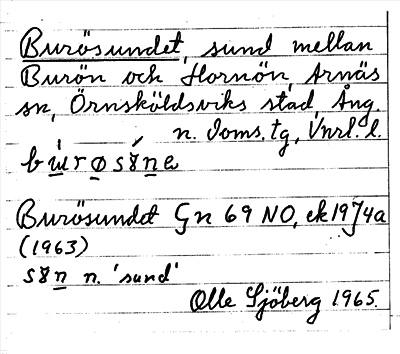 Burösundet, sund mellan
Burön och Hornön, Arnäs
sn, Örnsköldsviks stad, Ång.
n. Doms. tg, Vnrl. l.
Burösundet Gn 69 NO, ek 19J4a
(1963)
n. 'sund'
Olle Sjöberg 1965.